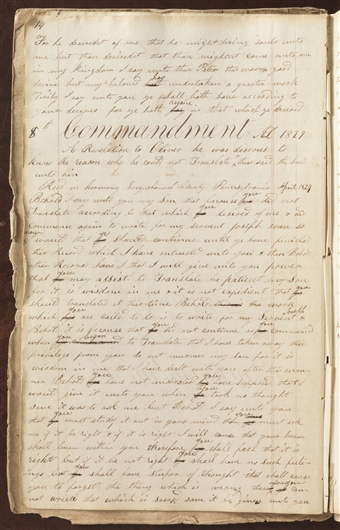 14
For he desiredst of me that he might bring souls unto
me but thou desiredst that thou mightest come unto me
in my Kingdom I say unto thee Peter this was a good
desire but my beloved has undertaken a greater work
Verily I say unto you ye shall both have according to
your desires for ye both joy in that which ye desired
8th Commandment AD 1829
A Revelation to Oliver he was desirous to
know the reason why he could not Translate thus said the Lord
unto him
Received in Harmony Susquehanna County Pennsylvania April 1829
Behold I say unto you my Son that because ye did not
Translate according to that which ye desired of me & did
commence again to write for my servent Joseph even so
I would that ye should continue until ye have finished
this Record which I have intrusted unto you & then Behold
other Records have I that I will give unto you power
that ye may assist to Translate be patient my son
for it is wisdom in me & it is not expedient that ye you
should translate at this time Behold the work
which ye you are called to do is to write for my Servant Joseph
& Behold it is because that ye you did not continue as ye you commenced
when ye you began to Translate that I have taken away this
privilege from you do not murmur my Son for it is
wisdom in me that I have dealt with you after this man
ner Behold ye you have not understood ye you have supposed that I
would give it unto you when ye you took no thought
save it was to ask me but Behold I say unto you
that ye you must study it out in your mind then ye you must ask
me if it be right & if it is right I will cause that your bosom
shall burn within you therefore ye you shall feel that it is
right but if it is not right ye you shall have no such feel-
ings but ye you shall have stupor of thought that shall cause
you to forget the thing which is wrong therefore ye you can
not write that which is sacred save it is given unto you